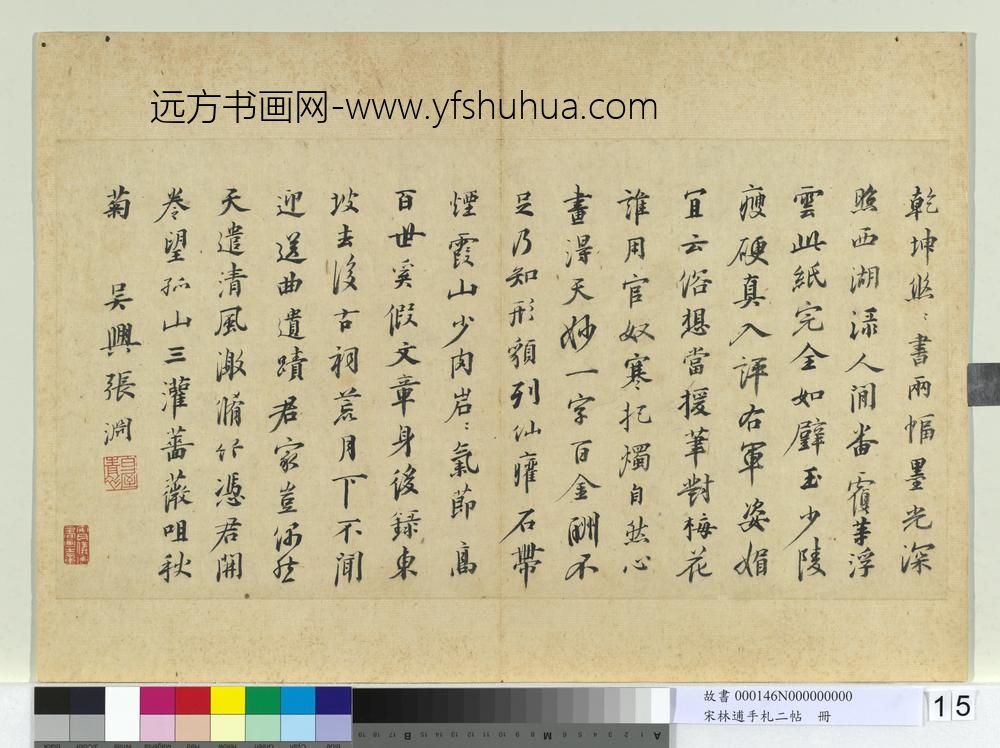 远方书画网-www.yfshuhua.com
乾坤〻書兩幅墨光深
照西湖渌人間番覆等浮
雲此紙完全如璧玉少陵
瘦硬真入評右軍姿媚
宜云俗想當援筆對梅花
誰用官奴寒把燭自然心
畫得天妙一字百金酬不
足乃知形貌列仙癯石帶
煙霞山少肉岩〻氣節高
百世奚假文章身後録東
坡去後古祠荒月下不聞
迎送曲遺蹟君家豈偶然
天遣清風激脩竹憑君開
卷望孤山三灌薔薇咀秋
菊 吳興張淵
故書 000146N000000000
宋林逋手札二帖 冊
15